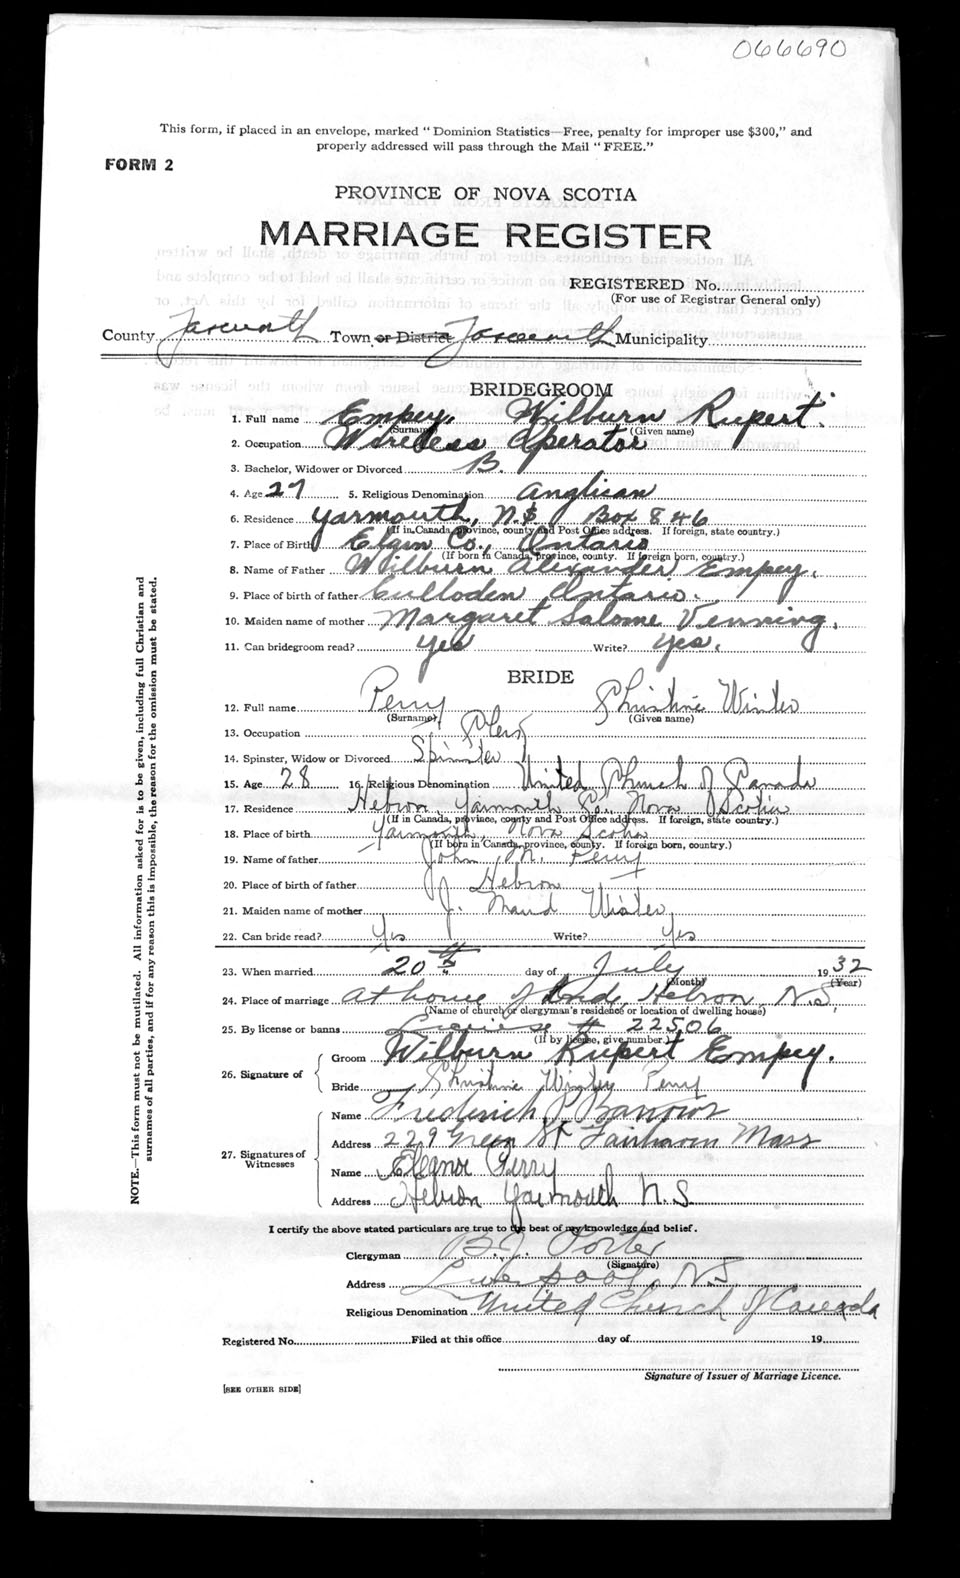 066690
This form, if placed in an envelope, marked "Dominion Statistics—Free, penalty for improper use $300," and
properly addressed will pass through the Mail "FREE."
FORM 2
PROVINCE OF NOVA SCOTIA
MARRIAGE REGISTER
REGISTERED No.
(For use of Registrar General only)
County Yarmouth Town or District Yarmouth Municipality
BRIDEGROOM
1. Full name Empey, Wilburn Rupert.
(Surname) (Given name)
2. Occupation Wireless Operator
3. Bachelor, Widower or Divorced B.
4. Age 27 5. Religious Denomination Anglican
6. Residence Yarmouth, N.S. Box 846
(If in Canada, province, county and Post Office address. If foreign, state country.)
7. Place of Birth Elgin Co., Ontario
(If born in Canada, province, county. If foreign born, country.)
8. Name of Father Wilburn Alexander Empey.
9. Place of birth of father Culloden Ontario.
10. Maiden name of mother Margaret Salome Venning.
11. Can bridegroom read? Yes Write? Yes.
BRIDE
12. Full name Perry Christine Winter
(Surname) (Given name)
13. Occupation Clerk
14. Spinster, Widow or Divorced Spinster
15. Age 28 16. Religious Denomination United Church of Canada
17. Residence Hebron, Yarmouth Co., Nova Scotia
(If in Canada, province, county and Post Office address. If foreign, state country.)
18. Place of birth Yarmouth, Nova Scotia
(If born in Canada, province, county. If foreign born, country.)
19. Name of father John M. Perry
20. Place of birth of father Hebron
21. Maiden name of mother J. Maud Winter
22. Can bride read? Yes Write? Yes
23. When married 20th day of July 1932
(Month) (Year)
24. Place of marriage At home of bride, Hebron, N.S,
(Name of church or clergyman's residence or location of dwelling house)
25. By license or banns License # 22506
(If by license, give number.)
26. Signature of
Groom Wilburn Rupert Empey.
Bride Christine Winter Perry
27. Signatures of Witnesses
Name Frederick P Barrows
Address 229 Green St Fairhaven Mass
Name Eleanor Perry
Address Hebron Yarmouth N.S
I certify the above stated particulars are true to the best of my knowledge and belief.
Clergyman B. J. Porter
(Signature)
Address Liverpool, N.S
Religious Denomination United Church of Canada
Registered No. Filed at this office day of 19
Signature of Issuer of Marriage Licence.
[SEE OTHER SIDE]
NOTE.—This form must not be mutilated. All information asked for is to be given, including full Christian and
surnames of all parties, and if for any reason this is impossible, the reason for the omission must be stated.